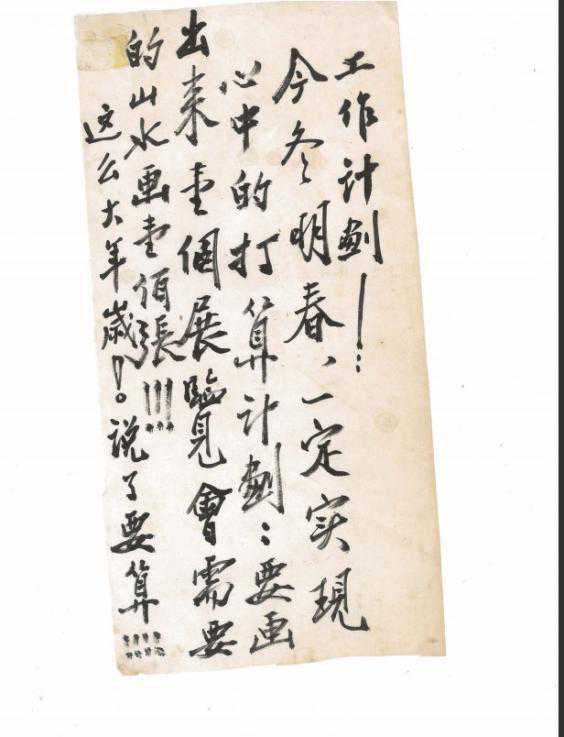 工作计劃——:
今冬明春，一定实現
心中的打算计劃：要画
出来壹個展覽會需要
的山水画壹佰張!!!
这么大年歲!。说了要算!!!!